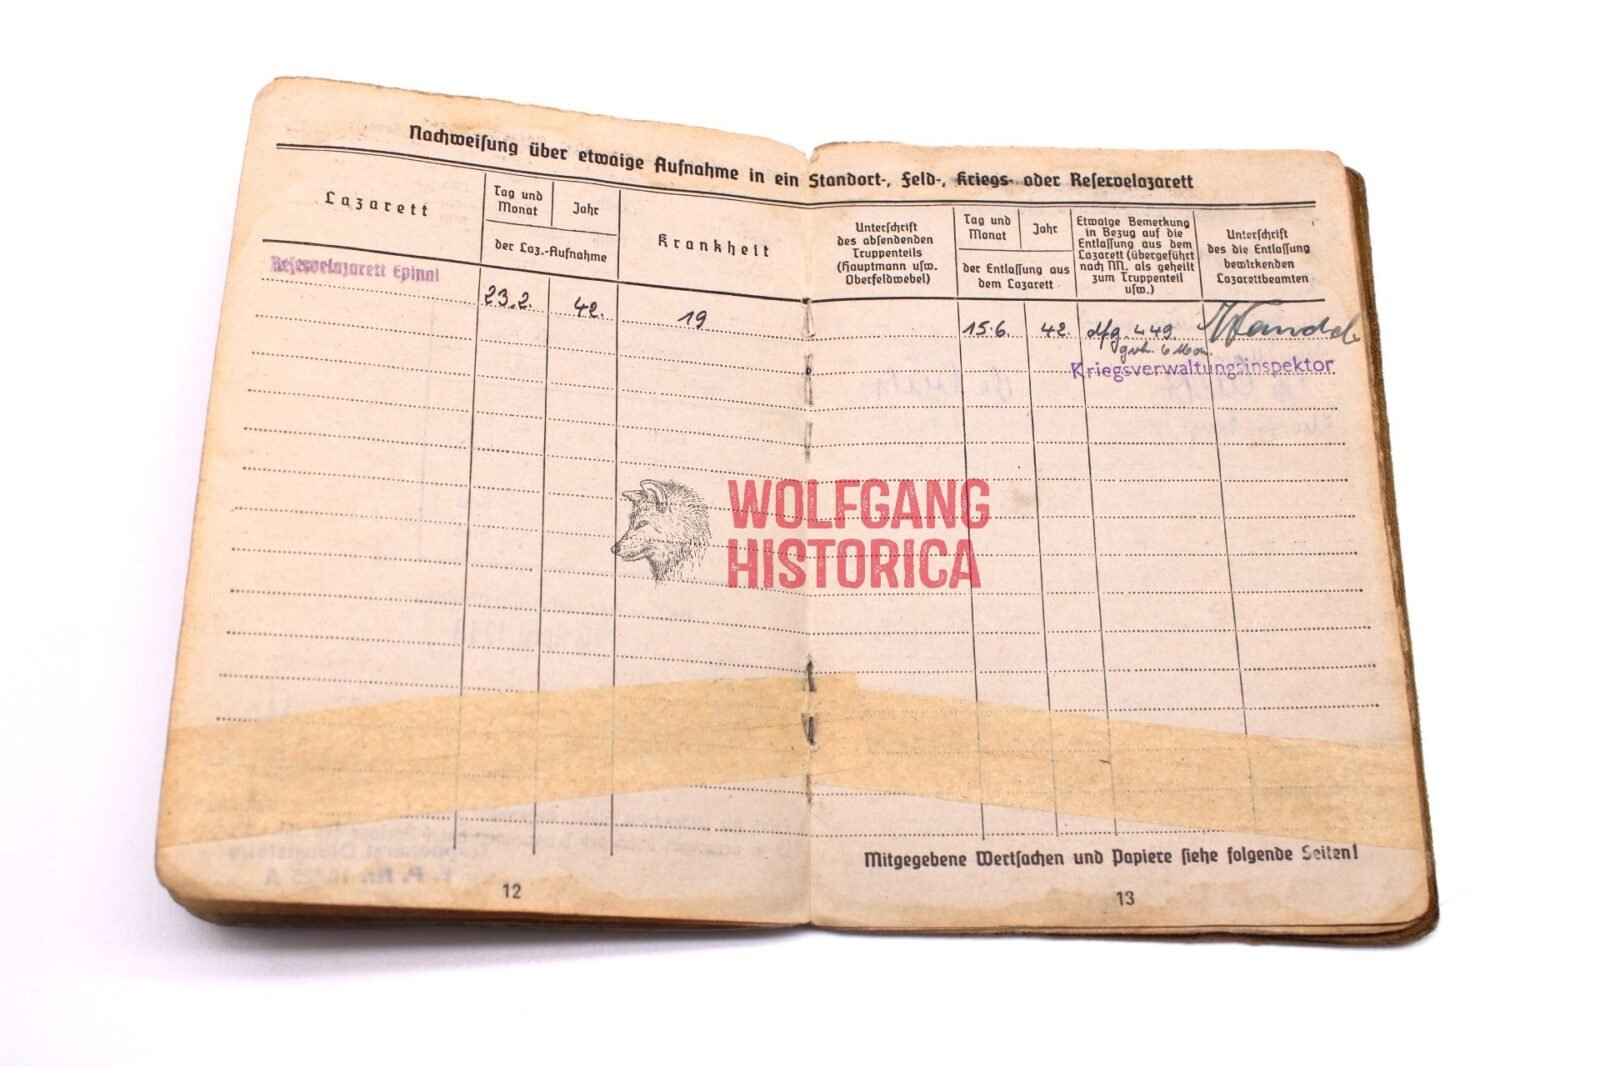 Nachweisung über etwaige Aufnahme in ein Standort-, Feld-, Kriegs- oder Reservelazarett
Lazarett
Tag und
Monat
Jahr
der Laz.-Aufnahme
Krankheit
Unterschrift
des absendenden
Truppenteils
(Hauptmann usw.
Oberfeldwebel)
Tag und
Monat
Jahr
der Entlassung aus
dem Lazarett
Etwaige Bemerkung
in Bezug auf die
Entlassung aus dem
Lazarett (übergeführt
nach NN. als geheilt
zum Truppenteil
usw.)
Unterschrift
des die Entlassung
bewirkenden
Lazarettbeamten
Reservelazarett Epinal
23.2. 42. 19 15.6. 42. dfg. 449.
Kriegsverwaltungsinspektor
WOLFGANG
HISTORICA
Mitgegebene Wertsachen und Papiere siehe folgende Seiten!
12
13